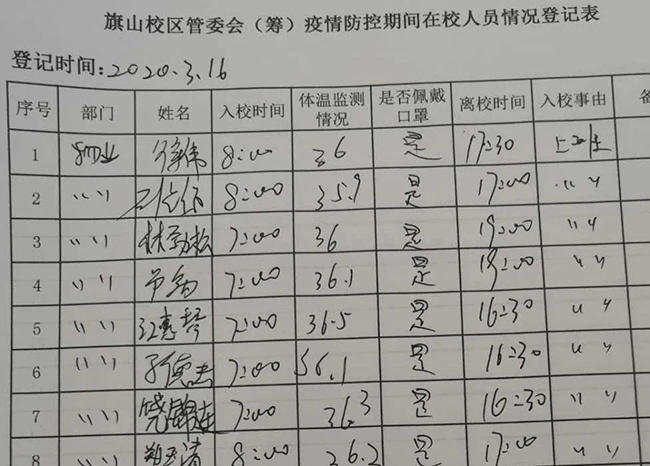 旗山校区管委会（筹）疫情防控期间在校人员情况登记表
登记时间:2020.3.16
序号 部门 姓名 入校时间 体温监测情况 是否佩戴口罩 离校时间 入校事由 备
1 物业 8:00 36 是 17:30 上班
2 〃 〃 8:00 35.9 是 17:00 〃 〃
3 〃 〃 林劲松 7:00 36 是 19:00 〃 〃
4 〃 〃 7:00 36.1 是 19:00 〃 〃
5 〃 〃 江惠琴 7:00 36.5 是 16:30 〃 〃
6 〃 〃 7:00 36.1 是 16:30 〃 〃
7 〃 〃 7:00 36.3 是 16:30 〃 〃
8 〃 〃 8:00 36.2 是 17:00